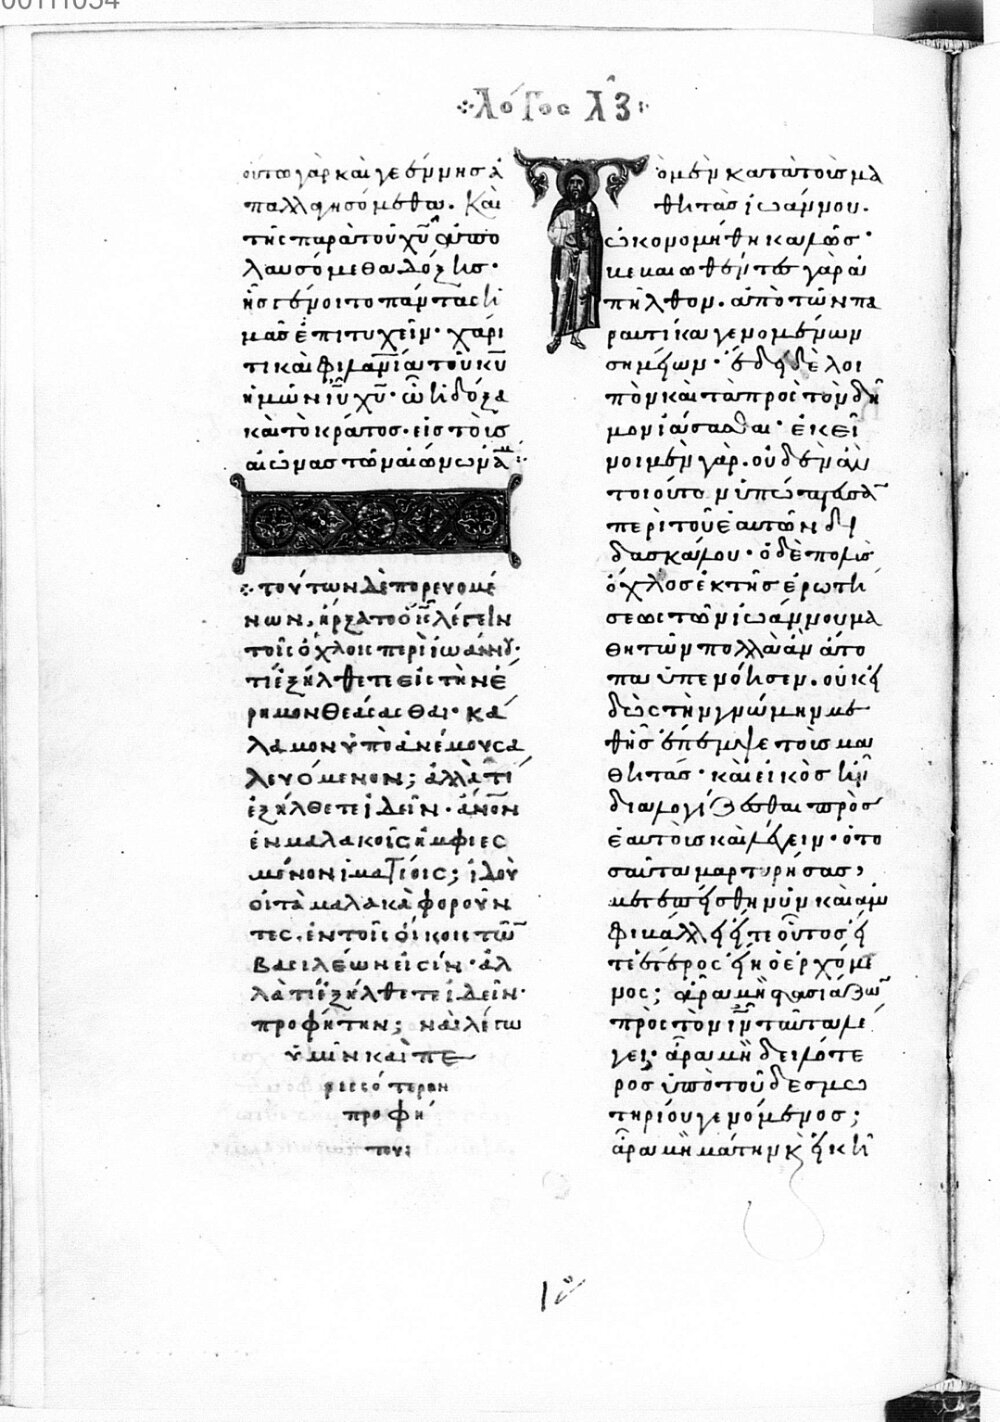 00111054
λόγος λζ
οὕτω γὰρ καὶ γεέννης ἀ
παλλαγησόμεθα. Καὶ
τῆς παρὰ τοῦ χυ ἀπο
λαυσόμεθα δόξης·
ἧς γένοιτο πάντας ἡ
μᾶς ἐπιτυχεῖν· χάρι
τι καὶ φιλανια τοῦ κυ
ἡμῶν ιυ χυ· ὧ ἡ δόξα
καὶ τὸ κράτος· εἰς τοὺς
αἰῶνας τῶν αἰώνων ἀμ
τούτων δὲ πορευομέ
νων, ἤρξατο ὁ ις λέγειν
τοῖς ὄχλοις περὶ ἰωάννου·
τί ἐξήλθετε εἰς τὴν ἔ
ρημον θεάσασθαι· κά
λαμον ὑπὸ ἀνέμου σα
λευόμενον; ἀλλὰ τί
ἐξήλθετε ἰδεῖν· ἄνον
ἐν μαλακοῖς ἠμφιεσ
μένον ἱματίοις; ἰδοὺ
οἱ τὰ μαλακὰ φοροῦν
τες, ἐν τοῖς οἴκοις τῶν
βασιλέων εἰσίν· ἀλ
λὰ τί ἐξήλθετε ἰδεῖν·
προφήτην; ναὶ λέγω
ὑμῖν καὶ πε
ρισσότερον
προφή
του;
Τὸ μὲν κατὰ τοὺς μα
θητὰς ἰωάννου.
ὠκονομήθη καλῶς·
καὶ βεβαιωθέντες γὰρ ἀ
πῆλθον. ἀπὸ τῶν πα
ραυτίκα γενομένων
σημείων· ἔδει δὲ λοι
πὸν καὶ τὰ πρὸς τὸν δῆ
μον ἰάσασθαι· ἐκεῖ
νοι μὲν γὰρ. οὐδὲν ἂν
τοιοῦτο ὑπώπτευσαν
περὶ τοῦ ἑαυτῶν δι
δασκάλου· ὁ δὲ πολὺς
ὄχλος ἐκ τῆς ἐρωτή
σεως τῶν ἰωάννου μα
θητῶν πολλὰ ἂν ἄτο
πα ὑπενόησεν. οὐκ εἰ
δὼς τὴν γνώμην με
θῆς ἔπεμψε τοὺς μα
θητάς· καὶ εἰκὸς ἦν
διαλογίζεσθαι πρὸς
ἑαυτοὺς καὶ λέγειν· ὁ το
σαῦτα μαρτυρήσας,
μετεπείσθη νῦν καὶ ἀμ
φιβάλλει εἴτε οὗτος εἴ
τε ἕτερος εἴη ὁ ἐρχόμε
νος; ἆρα μὴ στασιάζων
πρὸς τὸν ιν ταῦτα λέ
γει; ἆρα μὴ δειλότε
ρος ὑπὸ τοῦ δεσμω
τηρίου γενόμενος;
ἆρα μὴ μάτην κ εἰκῆ